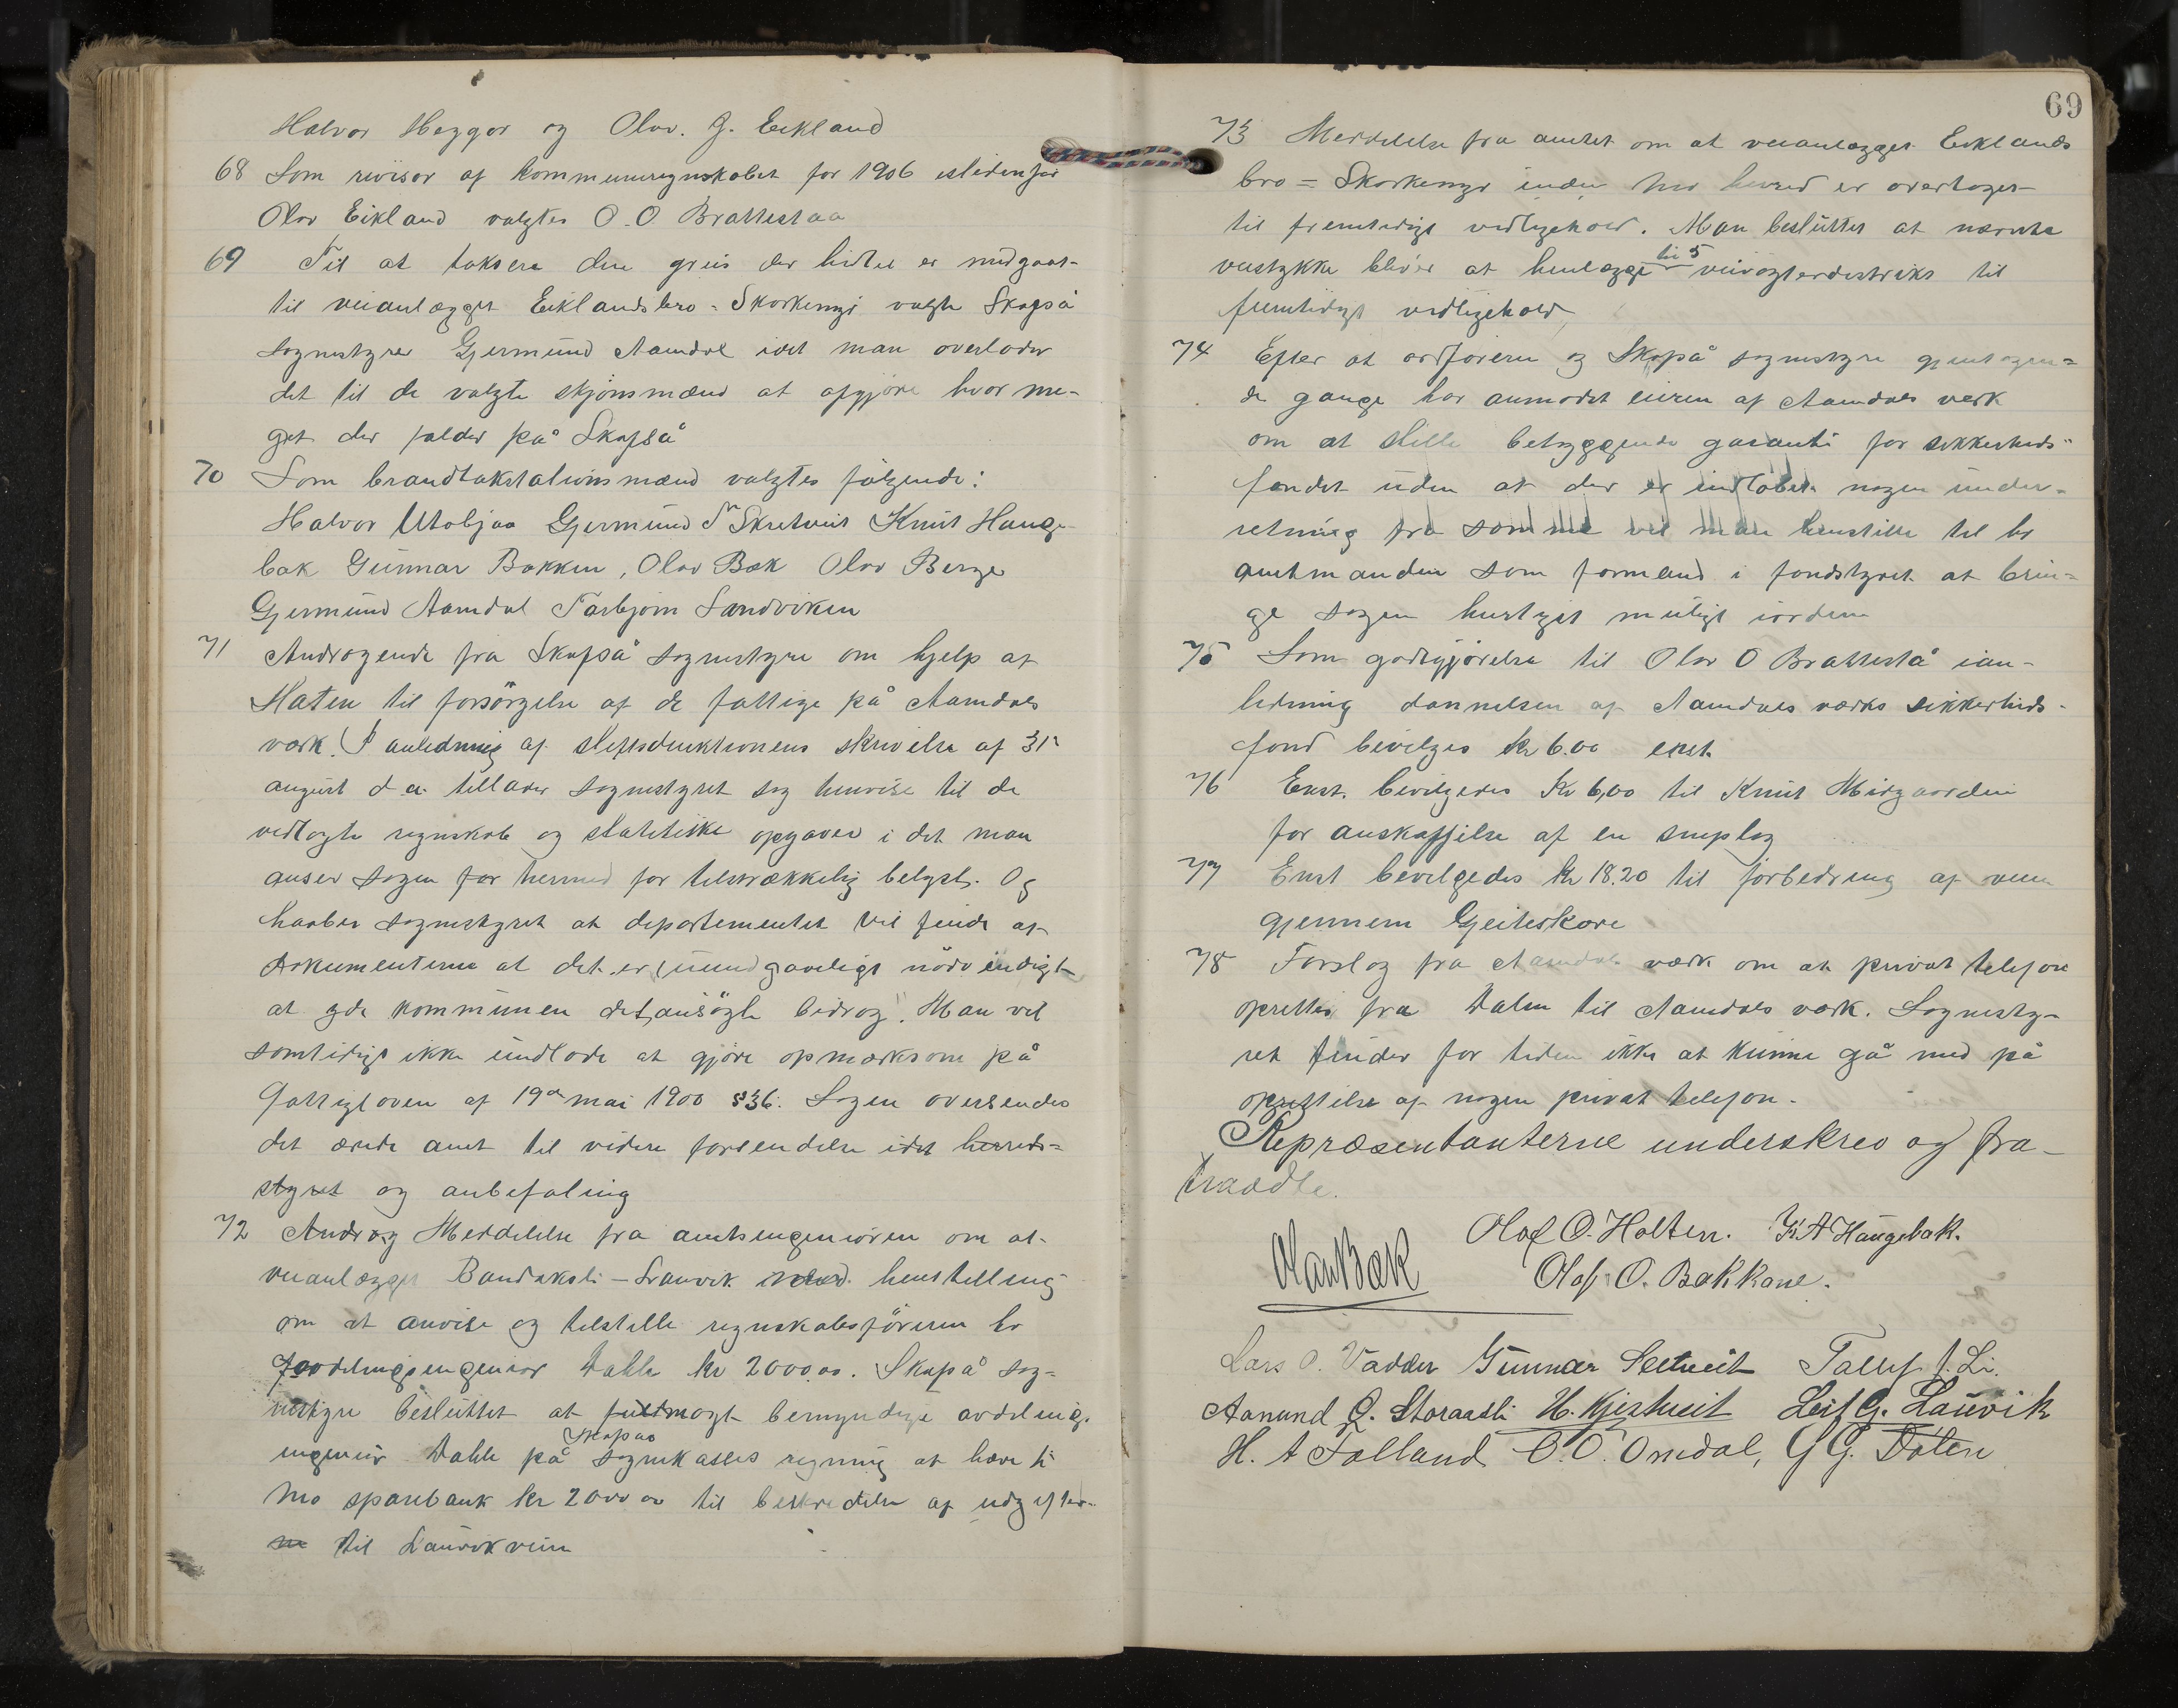 Halvor Heggor og Olav. G. Eikland
68 Som revisor af kommuneregnskabet for 1906 istedenfor
Olav Eikland valgtes O. O Brattestaa
69 Til at taksere den grus der hidtil er medgaat
til veianlægget Eiklandsbro = Skorkemyr valgte Skafså
sognestyre Gjermund Aamdal idet man overlader
det til de valgte skjönsmænd at afgjöre hvor me-
get der falder på Skafså
70 Som brandtakstationsmænd valgtes fölgende:
Halvor Utabjaa Gjermund Skretveit Knut Hauge-
bak Gunnar Bakken, Olav Bæk Olav Berge
Gjermund Aamdal Torbjörn Sandviken
71 Andragende fra Skafså sognestyre om hjelp af
Staten til forsörgelse af de fattige på Aamdals
værk. I anledning af skrivelse af 31te
august d. a. tillader sognestyret sig henvise til de
vedlagte regnskab og statistiske opgaver i det man
anser sagen for hermed for tilstrækkelig belyst. Og
haaber sognestyret at departementet vil finde af
dokumenterne at det er uundgaaeligt nödvendigt
at yde kommunen det ansögte bidrag. Man vil
samtidigt ikke undlade at gjöre opmærksom på
Fattigloven af 19de mai 1900 §36. Sagen oversendes
det ærede amt til videre forsendelse idet herreds=
styret og anbefaling
72 Andrag Meddelelse fra amtsingeniören om at
veianlægget Bandaksli - Lauvik med henstilling
om at anvise og tilstille regnskabsföreren hr
Avdelingsingeniör Dahle kr 2000.00. Skafså sog=
nestyre besluttet at fuldmagt bemyndige avdelings
Skafså
ingeniör Dahle på sognekasses regning at hæve i
Mo sparebank kr 2000 00 til bestridelse af udgifter-
ne til Lauvikveien
69
73 Meddelelse fra amtet om at veianlægget Eiklands
bro = Skorkemyr inden Mo herred er overtaget
til fremtidigt vedligehold. Man besluttet at nævnte
til 5
veistykke bliver at henlægge veivogterdistrikt til
fremtidigt vedligehold,
74 Efter at ordföreren og Skafså sognestyre gjentagen=
de gange har anmodet eieren af Aamdals verk
om at stille betryggende garanti for sikkerheds=
fondet uden at der er indlöbet nogen under-
retning fra samme vil man henstille til hr
amtmanden som formand i fondstyret at brin=
ge sagen hurtigst muligt iorden
75 Som godtgjörelse til Olav O Brattestå ian-
ledning dannelsen af Aamdals værks sikkerheds-
fond bevilges kr 6.00 enst.
76 Enst. bevilgedes Kr 6,00 til Knut Midgaarden
for anskaffelse af en sneplog
77 Enst bevilgedes kr 18.20 til forbedring af veien
gjennem Geiteskare
78 Forslag fra Aamdals værk om at privat telefon
oprettes fra Dalen til Aamdals værk. Sognesty-
ret finder for tiden ikke at kunne gå med på
oprettelse af nogen privat telefon.
Repræsentanterne underskrev og fra-
traadte.
Olav Bæk Olaf O. Holten. K. A Haugebak.
Olaf O. Bakkane.
Lars O. Vadder Gunnar Seltveit Tallef J. Li.
Aanund O. Storaasli H. Kjistveit Leif G. Lauvik
H. A Falland O. O. Omdal, G G. Dalen